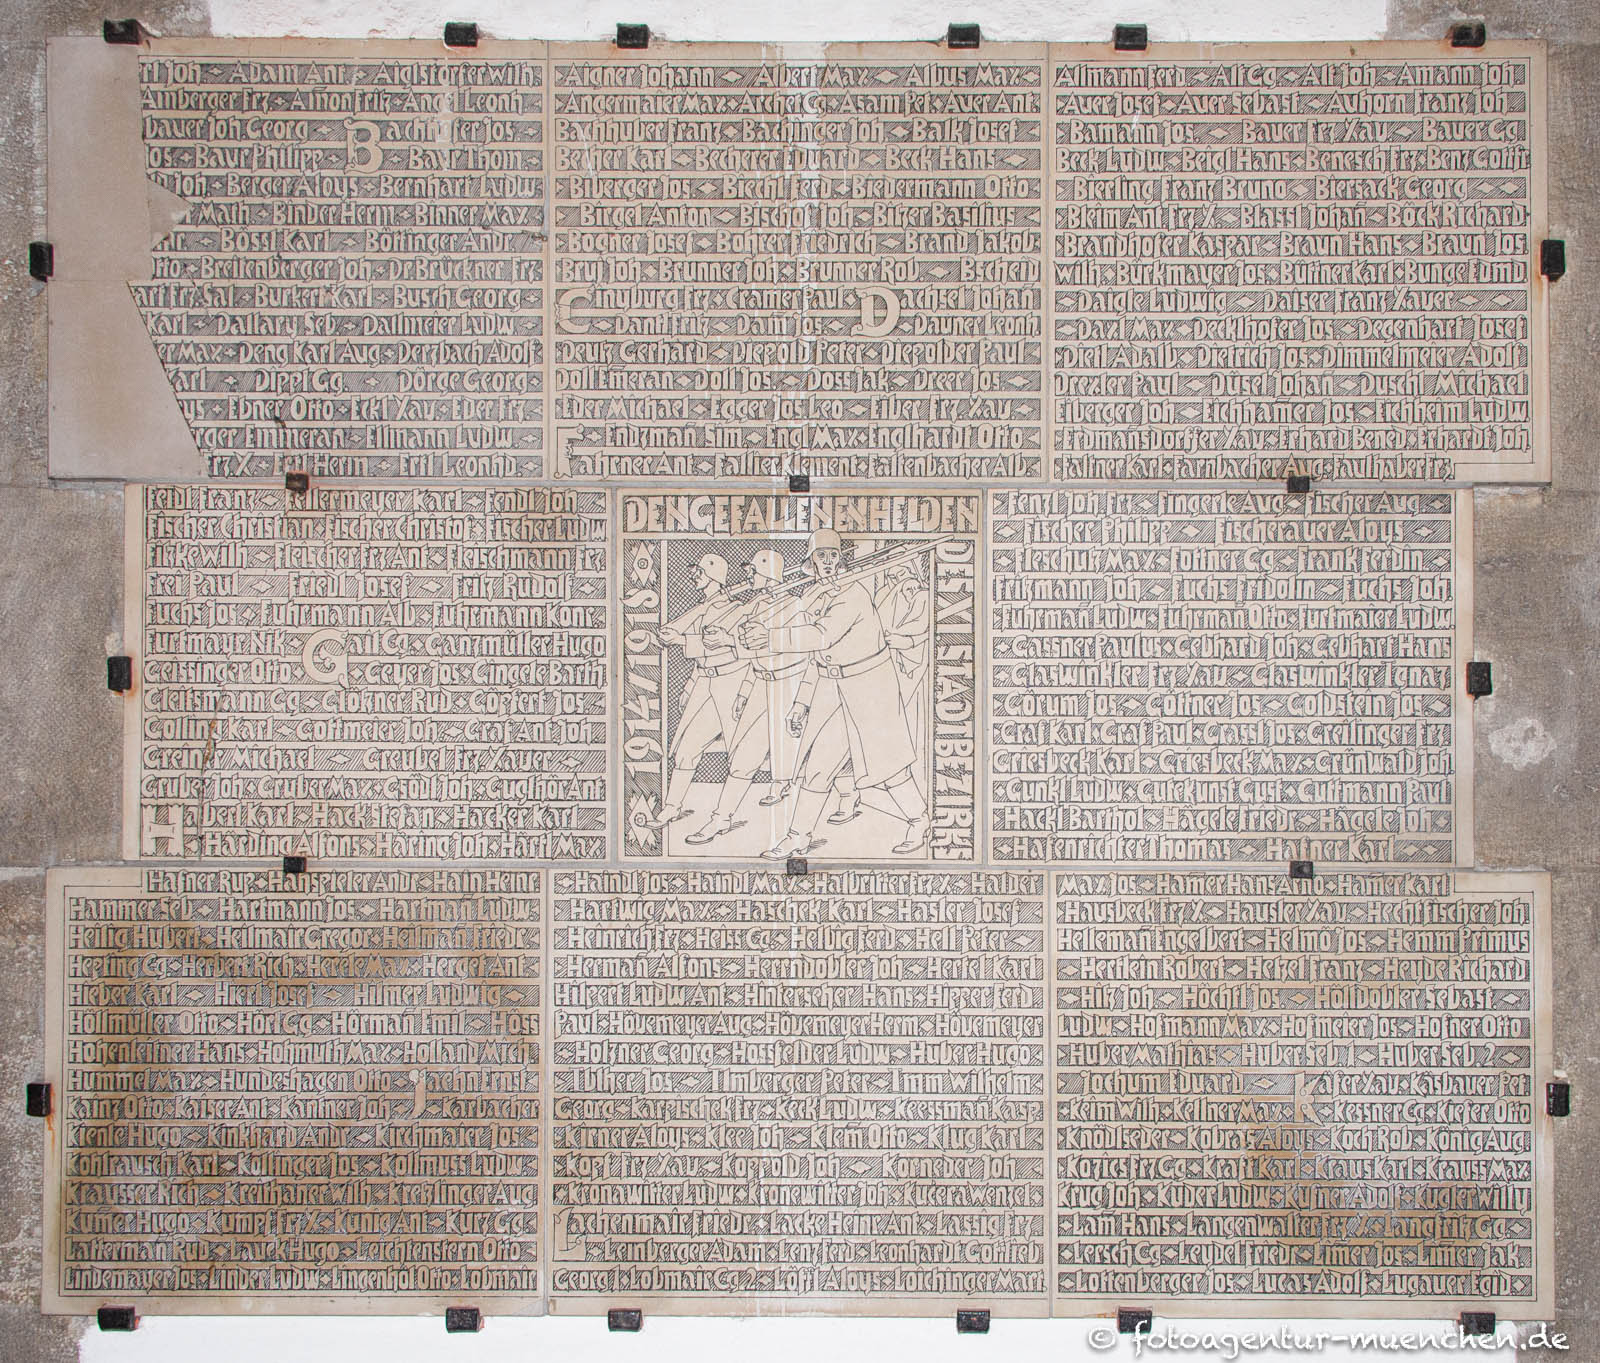 Joh. ◆ Adam Ant. ◆ Aiglstorfer Wilh. ◆ Aigner Johann ◆ Albert Max ◆ Albus Max ◆ Allmann Ferd ◆ Alt Gg. ◆ Alt Joh. ◆ Amann Joh
Amberger Frz. ◆ Amon Fritz ◆ Angel Leonh. ◆ Angermaier Max ◆ Archet Gg ◆ Asam Pet. ◆ Auer Ant. ◆ Auer Josef ◆ Auer Sebast. ◆ Auhorn Franz Jos
bauer Joh. Georg ◆ Bachhofer Jos. ◆ Bachhuber Franz ◆ Bachinger Joh. ◆ Balk Josef ◆ Bamann Jos. ◆ Bauer Frz. Xav. ◆ Bauer Gg
Jos. ◆ Baur Philipp ◆ Baur Thom. ◆ Becher Karl ◆ Becherer Eduard ◆ Beck Hans ◆ Beck Ludw. ◆ Beigl Hans ◆ Benesch Frz. ◆ Benz Gottfr
Joh. ◆ Berger Aloys ◆ Bernhart Ludw. ◆ Biberger Jos ◆ Biechl Ferd ◆ Biedermann Otto ◆ Bierling Franz Bruno ◆ Biersack Georg
Math. ◆ Binder Herm. ◆ Binner Max ◆ Birgel Anton ◆ Bischof Joh. ◆ Bitzer Basilius ◆ Bleim Ant. Frz. X. ◆ Blassl Johan̄ ◆ Böck Richard
◆ Bössl Karl ◆ Böttinger Andr. ◆ Bogner Josef ◆ Bohrer Friedrich ◆ Brand Jakob ◆ Brandhofer Kaspar ◆ Braun Hans ◆ Braun Jos
Otto ◆ Breitenberger Joh. ◆ Dr Brückner Frz. ◆ Bryl Joh. ◆ Brunner Joh. ◆ Brunner Rob. ◆ Bscheid Wilh. ◆ Bürkmayer Jos ◆ Büttner Karl ◆ Bunge Edmd
Frz. Sal. ◆ Burkert Karl ◆ Busch Georg ◆ Cinyburg Frz. ◆ Cramer Paul ◆ Dachsel Johan̄ ◆ Daigle Ludwig ◆ Daiser Franz Xaver
Karl ◆ Dallary Seb. ◆ Dallmeier Ludw. ◆ Dantl Fritz ◆ Dam̄ Jos. ◆ Dauner Leonh. ◆ Daxl Max ◆ Decklhofer Jos ◆ Degenhart Josef
er Max ◆ Deng Karl Aug. ◆ Derzbach Adolf ◆ Deutz Gerhard ◆ Diepold Peter ◆ Diepolder Paul ◆ Dietl Adalb ◆ Dietrich Jos ◆ Dimmelmeier Adolf
Karl ◆ Dippl Gg. ◆ Dörge Georg ◆ Döll Em̄eran ◆ Döll Jos. ◆ Doss Jak ◆ Dreer Jos. ◆ Drexler Paul ◆ Düsel Johan̄ ◆ Duschl Michael
◆ Ebner Otto ◆ Eckl Xav. ◆ Eder Frz. ◆ Eder Michael ◆ Egger Jos Leo ◆ Eiber Frz. Xav. ◆ Eiberger Joh ◆ Eichham̄er Jos ◆ Eichheim Ludw
Emmeran ◆ Ellmann Ludw. ◆ Endzman̄ Sim ◆ Engl Max ◆ Englhardt Otto ◆ Erdman̄sdorffer Xav ◆ Erhard Bened. ◆ Erhardt Joh
Frz. X. ◆ Ertl Herm ◆ Ertl Leonhd. ◆ Fahrner Ant. ◆ Fallier Klement ◆ Faltenbacher Alb. ◆ Faltner Karl ◆ Farnbacher Aug. ◆ Faulhaber Frz.
Feldl Franz ◆ Fellermeyer Karl ◆ Fendl Joh ◆ Fenzl Joh. Frz ◆ Fingerle Aug ◆ Fischer Aug
DEN GEFALLENEN HELDEN
DES XI STADTBEZIRKS
1914/1918
Fischer Christian ◆ Fischer Christof ◆ Fischer Ludw ◆ Fischer Philipp ◆ Fischerauer Aloys
Fizke Wilh ◆ Fleischer Frz Ant ◆ Fleischmann Frz ◆ Fleschutz Max ◆ Fottner Gg ◆ Frank Ferdin
Frei Paul ◆ Friedl Josef ◆ Fritz Rudolf ◆ Frikmann Joh. ◆ Fuchs Fridolin ◆ Fuchs Joh.
Fuchs Jos ◆ Fuhrmann Alb. ◆ Fuhrmann Konr. ◆ Fuhrman Ludw. ◆ Fuhrman Otto ◆ Furtmaier Ludw.
Furtmayr Nik ◆ Gail Gg. ◆ Ganzmüller Hugo ◆ Gassner Paulus ◆ Gebhard Joh ◆ Gebhart Hans
Geissinger Otto ◆ Geyer Jos ◆ Gingele Barth ◆ Glaswinkler Frz Xav ◆ Glaswinkler Ignaz
Gleitsmann Gg ◆ Glökner Rud ◆ Göpfert Jos ◆ Görum Jos ◆ Göttner Jos ◆ Goldstein Jos
Golling Karl ◆ Gottmeier Joh ◆ Graf Ant. Joh ◆ Graf Karl ◆ Graf Paul ◆ Grassl Jos ◆ Greilinger Frz
Greiner Michael ◆ Greubel Frz Xaver ◆ Griesbeck Karl ◆ Griesbeck Max ◆ Grünwald Joh
Gruber Joh ◆ Gruber Max ◆ Gsödl Joh ◆ Guglhör Ant ◆ Gunkl Ludw ◆ Gutekunst Gust ◆ Guttmann Paul
Haberl Karl ◆ Hack Stefan ◆ Hacker Karl ◆ Hackl Barthol ◆ Hägele Friedr ◆ Hägele Joh
Härding Alfons ◆ Häring Joh ◆ Härtl Max ◆ Hafenrichter Thomas ◆ Hafner Karl
Hafner Rup ◆ Hanspeter Andr. ◆ Hain Heinr ◆ Haindl Jos ◆ Haindl Max ◆ Halbritter Frz X ◆ Halder Max Jos ◆ Ham̄er Hans Arno ◆ Ham̄er Karl
Hammer Seb. ◆ Hartmann Jos ◆ Hartman̄ Ludw. ◆ Hartwig Max ◆ Haschek Karl ◆ Hasler Josef ◆ Hausbeck Frz X. ◆ Hausler Xav. ◆ Hechtfischer Joh.
Heilig Hubert ◆ Heilmair Gregor ◆ Heilman̄ Friedr. ◆ Heinrich Frz ◆ Heiss Gg ◆ Helbig Ferd ◆ Hell Peter ◆ Helleman̄ Engelbert ◆ Helmö Jos ◆ Hemm Primus
Hepting Gg ◆ Herbert Rich. ◆ Herele Max ◆ Herget Ant. ◆ Herman̄ Alfons ◆ Herrndobler Joh ◆ Hertel Karl ◆ Hertlein Robert ◆ Hetzel Franz ◆ Heyde Richard
Hieber Karl ◆ Hierl Josef ◆ Hilmer Ludwig ◆ Hilpert Ludw. Ant ◆ Hinterscher Hans ◆ Hipper Ferd ◆ Hitz Joh ◆ Höchtl Jos ◆ Hölldobler Sebast
Höllmüller Otto ◆ Hörl Gg ◆ Hörman̄ Emil ◆ Höss Paul ◆ Hövemeyer Aug ◆ Hövemeyer Herm ◆ Hövemeyer Ludw ◆ Hofmann Max ◆ Hofmeier Jos ◆ Hofner Otto
Hohenleitner Hans ◆ Hohmuth Max ◆ Holland Mich ◆ Holzner Georg ◆ Hossfelder Ludw ◆ Huber Hugo ◆ Huber Mathias ◆ Huber Seb. 1 ◆ Huber Seb. 2
Hummel Max ◆ Hundeshagen Otto ◆ Jaehn Ernst ◆ Ilmberger Peter ◆ Imm Wilhelm ◆ Jochum Eduard ◆ Käfer Xav ◆ Käsbauer Pet
Kainz Otto ◆ Kaiser Ant ◆ Kantner Joh ◆ Karbacher Georg ◆ Karpischek Frz ◆ Keck Ludw ◆ Keessman̄ Kasp. ◆ Keim Wilh ◆ Kellner Max ◆ Kessner Gg ◆ Kiefer Otto
Kienle Hugo ◆ Kinkhard Andr ◆ Kirchmaier Jos ◆ Kirner Aloys ◆ Klee Joh ◆ Klem̄ Otto ◆ Klug Karl ◆ Knödlseder ◆ Kobras Aloys ◆ Koch Rob ◆ König Aug.
Kohlrausch Karl ◆ Kollinger Jos ◆ Kollmuss Ludw ◆ Kopf Frz Xav ◆ Koppold Joh ◆ Korneder Joh ◆ Kozics Frz Gg ◆ Kraft Karl ◆ Kraus Karl ◆ Krauss Max
Krausser Rich ◆ Kreithaner Wilh ◆ Kreizlinger Aug ◆ Kronawitter Ludw ◆ Kronewitter Joh ◆ Kucera Wenzel ◆ Krug Joh ◆ Kuder Ludw ◆ Kufner Adolf ◆ Kugler Willy
Kum̄er Hugo ◆ Kumpf Frz X ◆ Kunig Ant ◆ Kurz Gg ◆ Lachenmair Friedr ◆ Lacke Heinr Ant ◆ Lassig Frz ◆ Lam̄ Hans ◆ Langenwalter Frz X ◆ Lang Fritz Gg
Latterman̄ Rud ◆ Lauck Hugo ◆ Leichtenstern Otto ◆ Leinberger Adam ◆ Lenz Ferd ◆ Leonhardt Gottlieb ◆ Lersch Gg ◆ Leydel Friedr ◆ Lim̄er Jos ◆ Lim̄er Jak
Lindemayer Jos ◆ Linder Ludw. ◆ Lingenhöl Otto ◆ Lobmair Georg 1 ◆ Lobmair Gg 2 ◆ Löffl Aloys ◆ Loichinger Mart ◆ Lottenberger Jos ◆ Lucas Adolf ◆ Lugauer Egid
© fotoagentur-muenchen.de